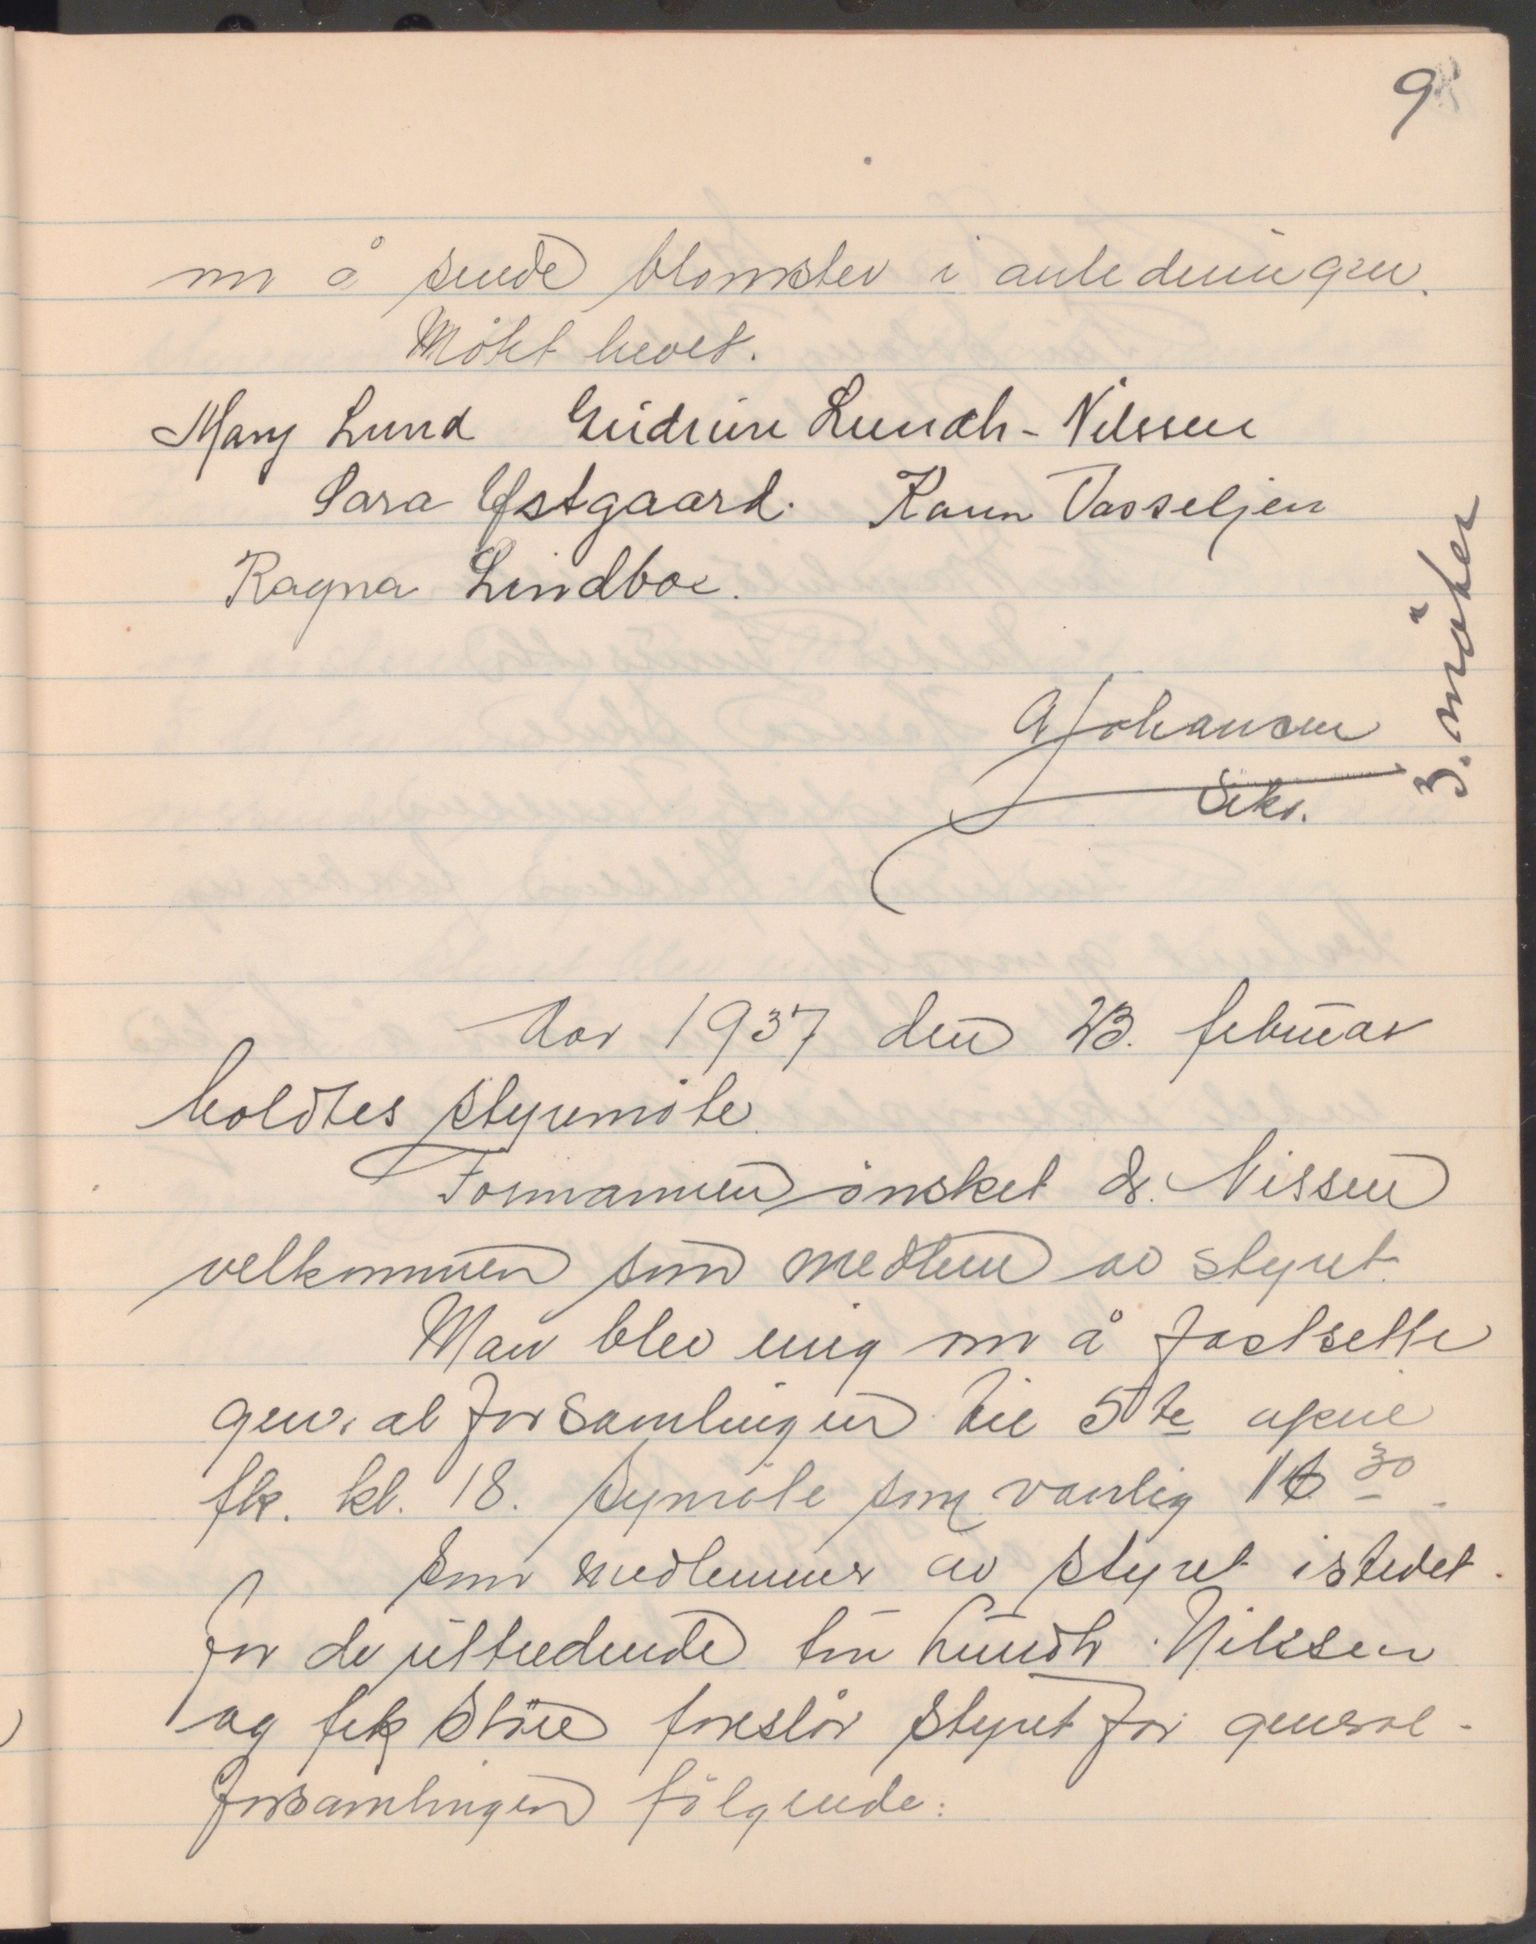 9
om å sende blomster i anledningen.
Møtet hevet.
Mary Lund Gudrun Lundh-Nilssen
Sara Østgaard. Karen Vasseljen
Ragna Lindboe.
3. møter
A Johansen
Sekr.
Aar 1937 den 23. februar
holdtes styremøte.
Formannen ønsket dr. Nissen
velkommen som medlem av styret.
Man blev enig om å fastsette
generalforsamlingen til 5te april
fk. kl. 18. Symøte som vanlig 16 30.
Som medlemmer av styret istedet
for de uttredende fru Lundh-Nilssen
og frk Støre foreslår styret for general-
forsamlingen følgende: